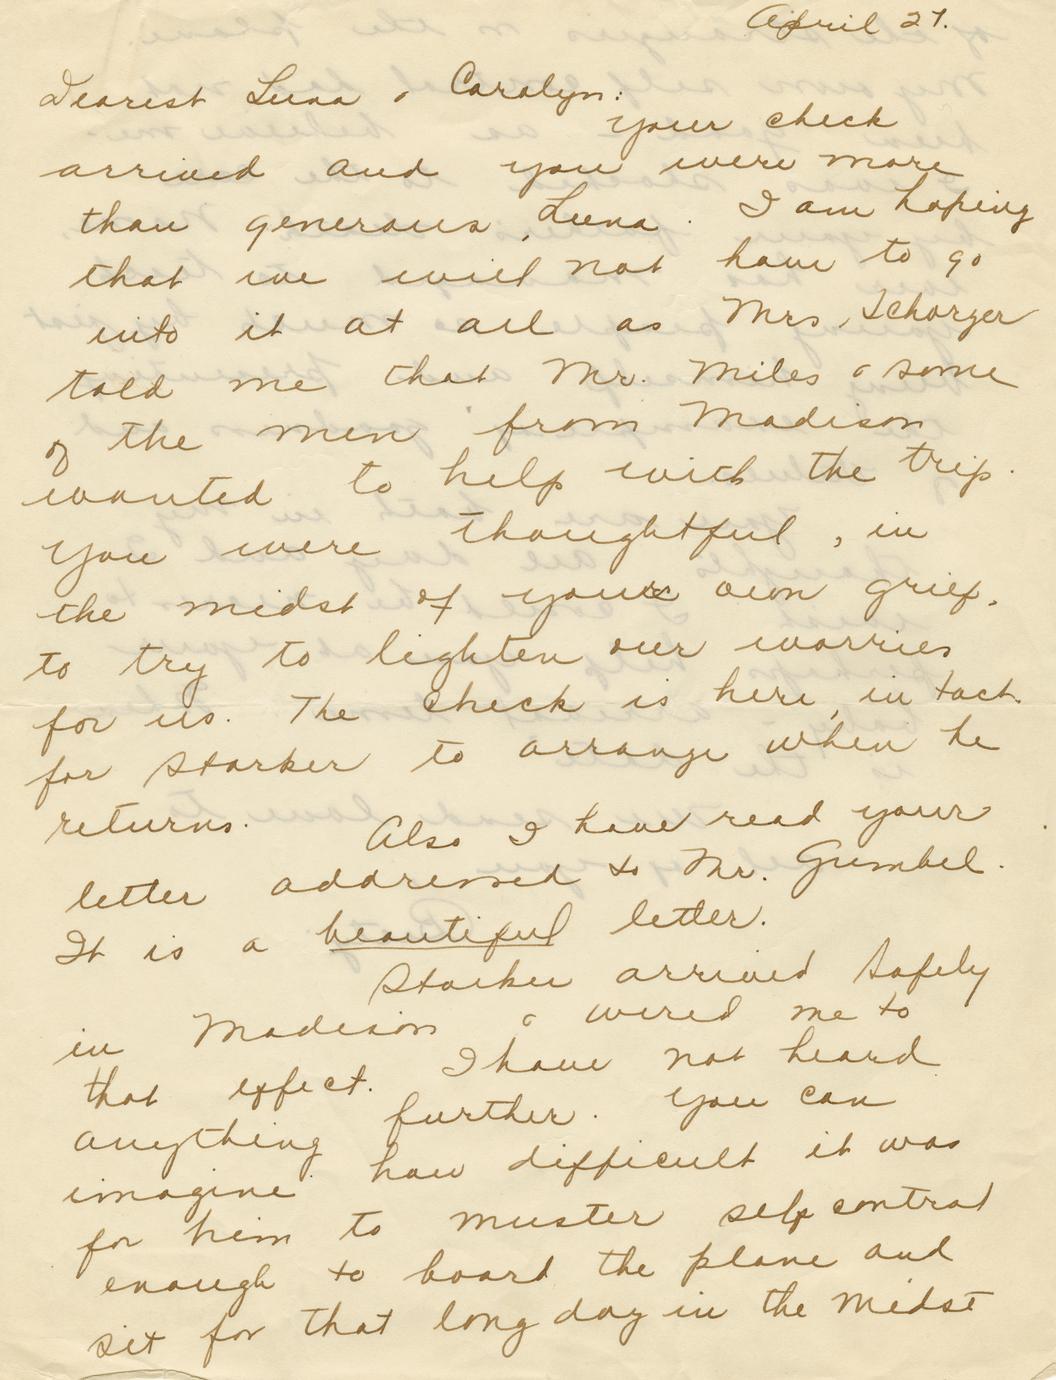 April 27.
Dearest Luna & Carolyn:
Your check
arrived and you were more
than generous, Luna. I am hoping
that we will not have to go
into it at all as Mrs. Schorger
told me that Mr. Miles & some
of the men from Madison
wanted to help with the trip.
You were thoughtful, in
the midst of your own grief,
to try to lighten our worries
for us. The check is here, in tact
for Starker to arrange when he
returns.
Also I have read your
letter addressed to Mr. Gumbel.
It is a beautiful letter.
Starker arrived safely
in Madison & wired me to
that effect. I have not heard
anything further. You can
imagine how difficult it was
for him to muster self control
enough to board the plane and
sit for that long day in the midst